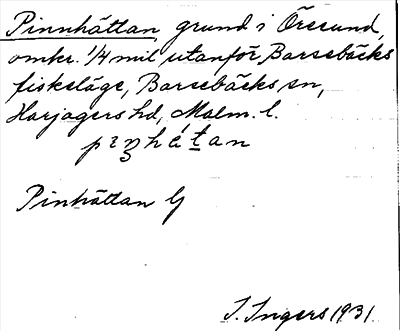 Pinnhättan grund i Öresund,
omkr. 1/4 mil utanför Barsebäcks
fiskeläge, Barsebäcks sn,
Harjagers hd, Malm. l.
pinhátan
Pinhättan G
I. Ingers 1931.